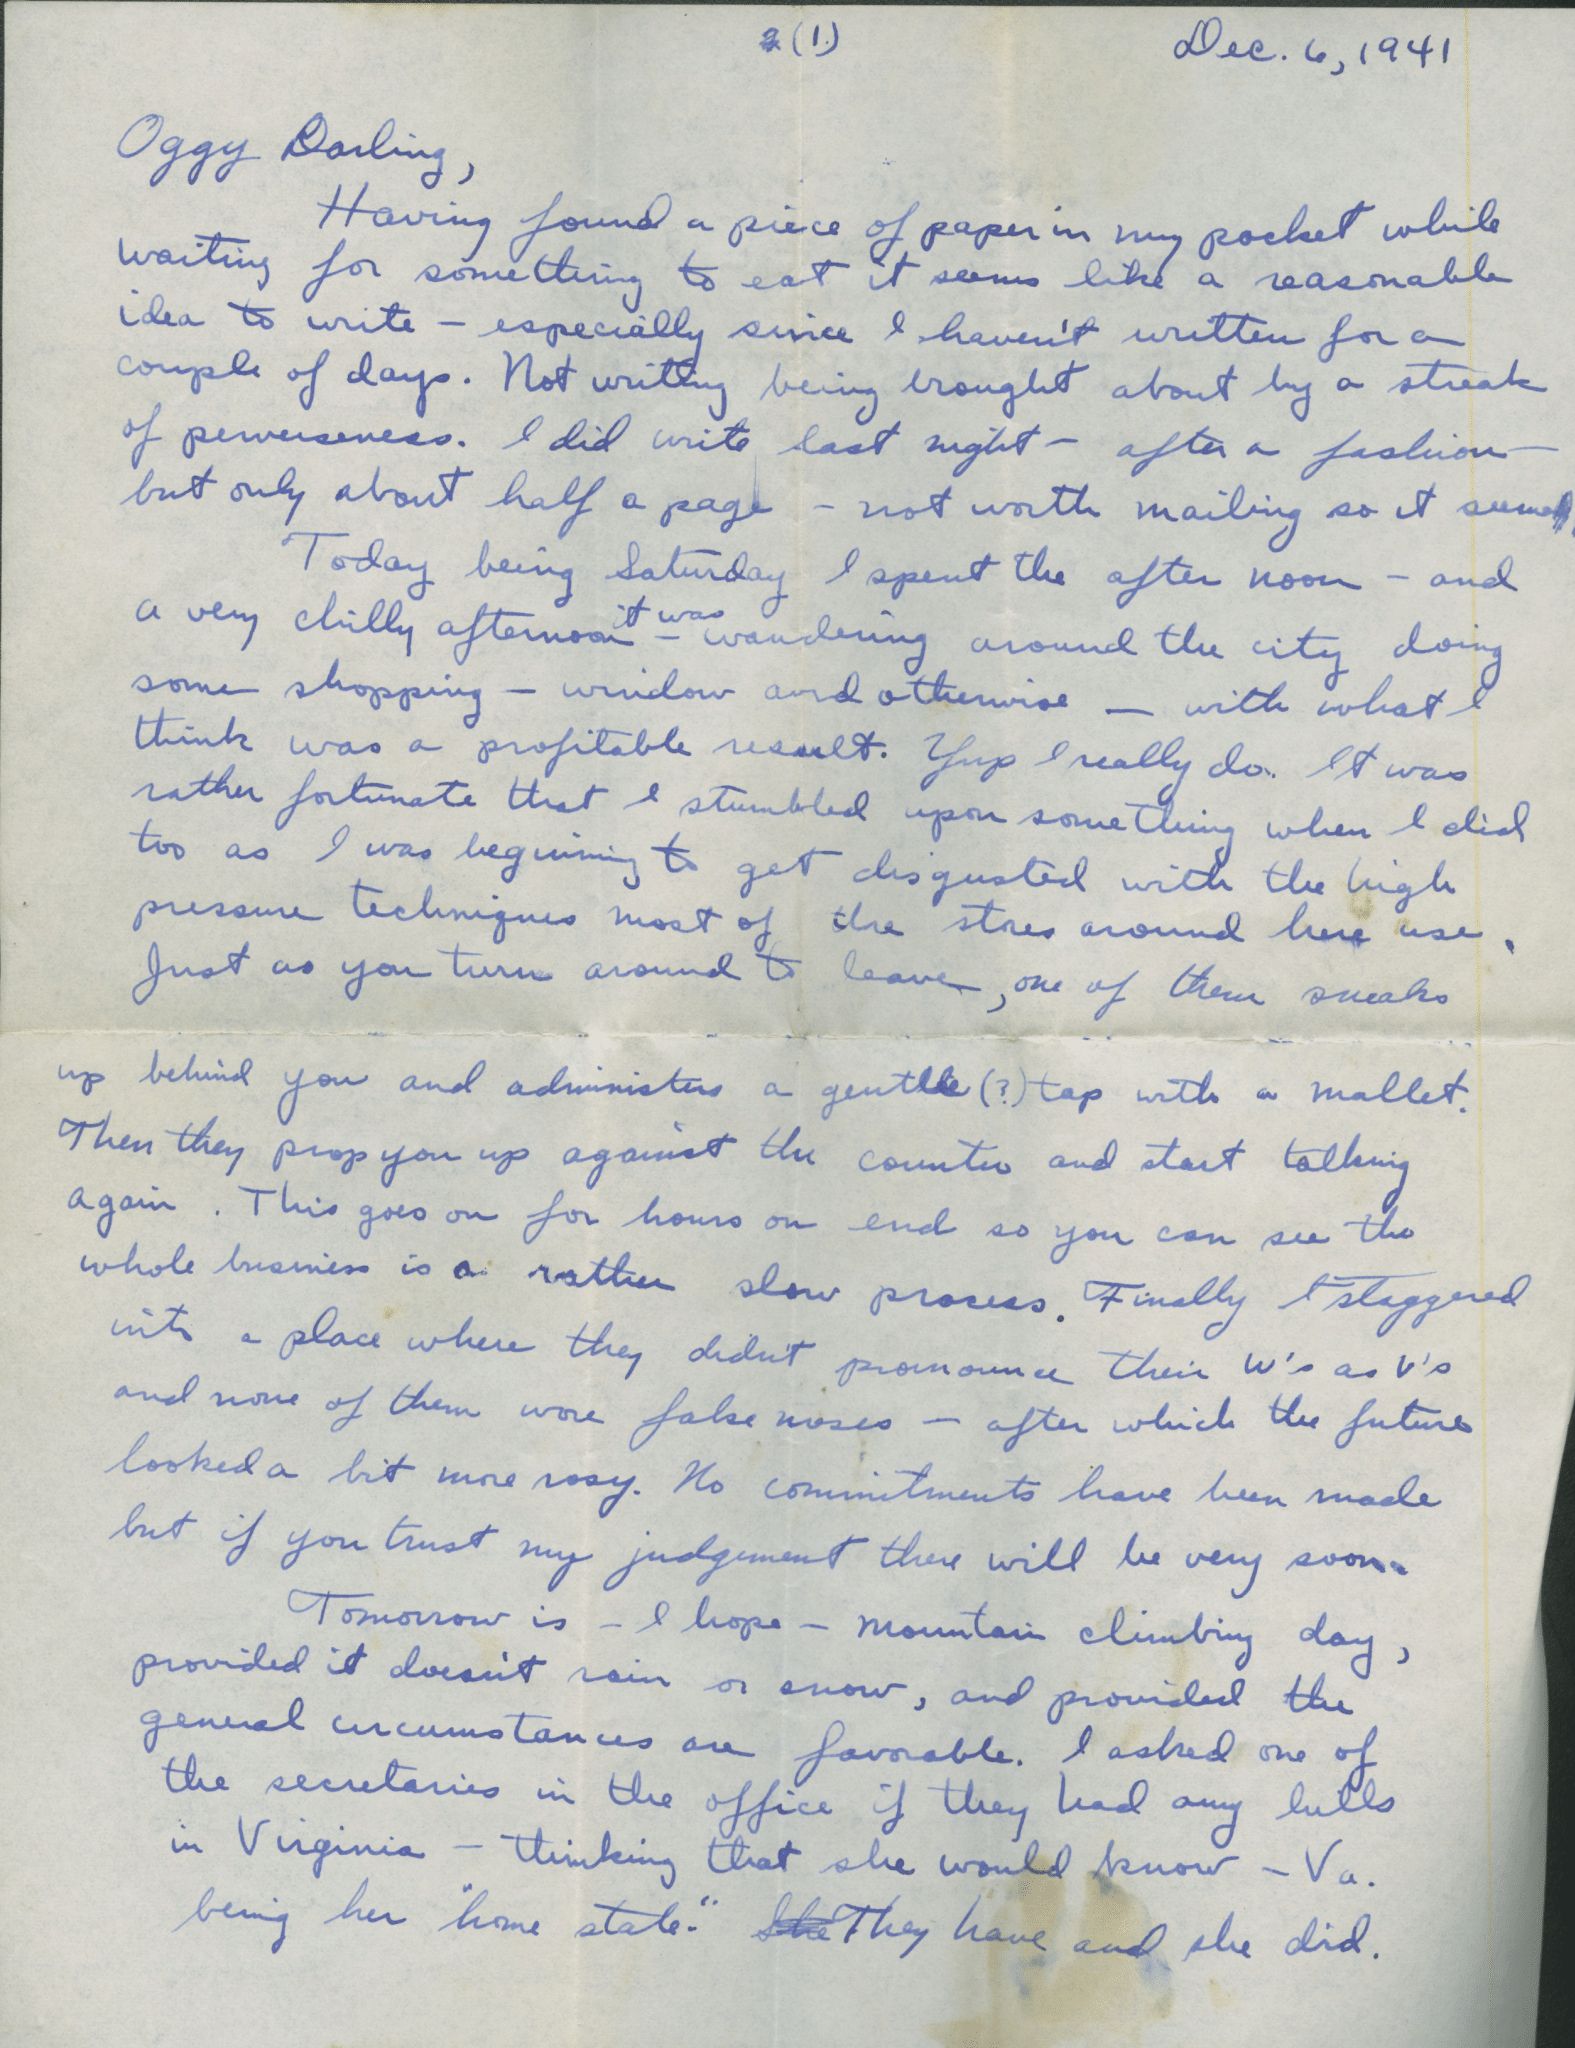 2 (1.)
Dec. 6, 1941
Oggy Darling,
Having found a piece of paper in my pocket while
waiting for something to eat it seems like a reasonable
idea to write – especially since I haven't written for a
couple of days. Not writing being brought about by a streak
of perverseness. I did write last night – after a fashion –
but only about half a page – not worth mailing so it seemed.
Today being Saturday I spent the after noon – and
a very chilly afternoon it was – wandering around the city doing
some shopping – window and otherwise – with what I
think was a profitable result. Yup I really do. It was
rather fortunate that I stumbled upon something when I did
too as I was beginning to get disgusted with the high
pressure techniques most of the stores around here use.
Just as you turn around to leave, one of them sneaks
up behind you and administers a gentle (?) tap with a mallet.
Then they prop you up against the counter and start talking
again. This goes on for hours on end so you can see the
whole business is a rather slow process. Finally I staggered
into a place where they didn't pronounce their W's as V's
and none of them wore false noses – after which the future
looked a bit more rosy. No commitments have been made
but if you trust my judgement there will be very soon.
Tomorrow is – I hope – mountain climbing day,
provided it doesn't rain or snow, and provided the
general circumstances are favorable. I asked one of
the secretaries in the office if they had any hills
in Virginia – thinking that she would know – Va.
being her "home state." She They have and she did.